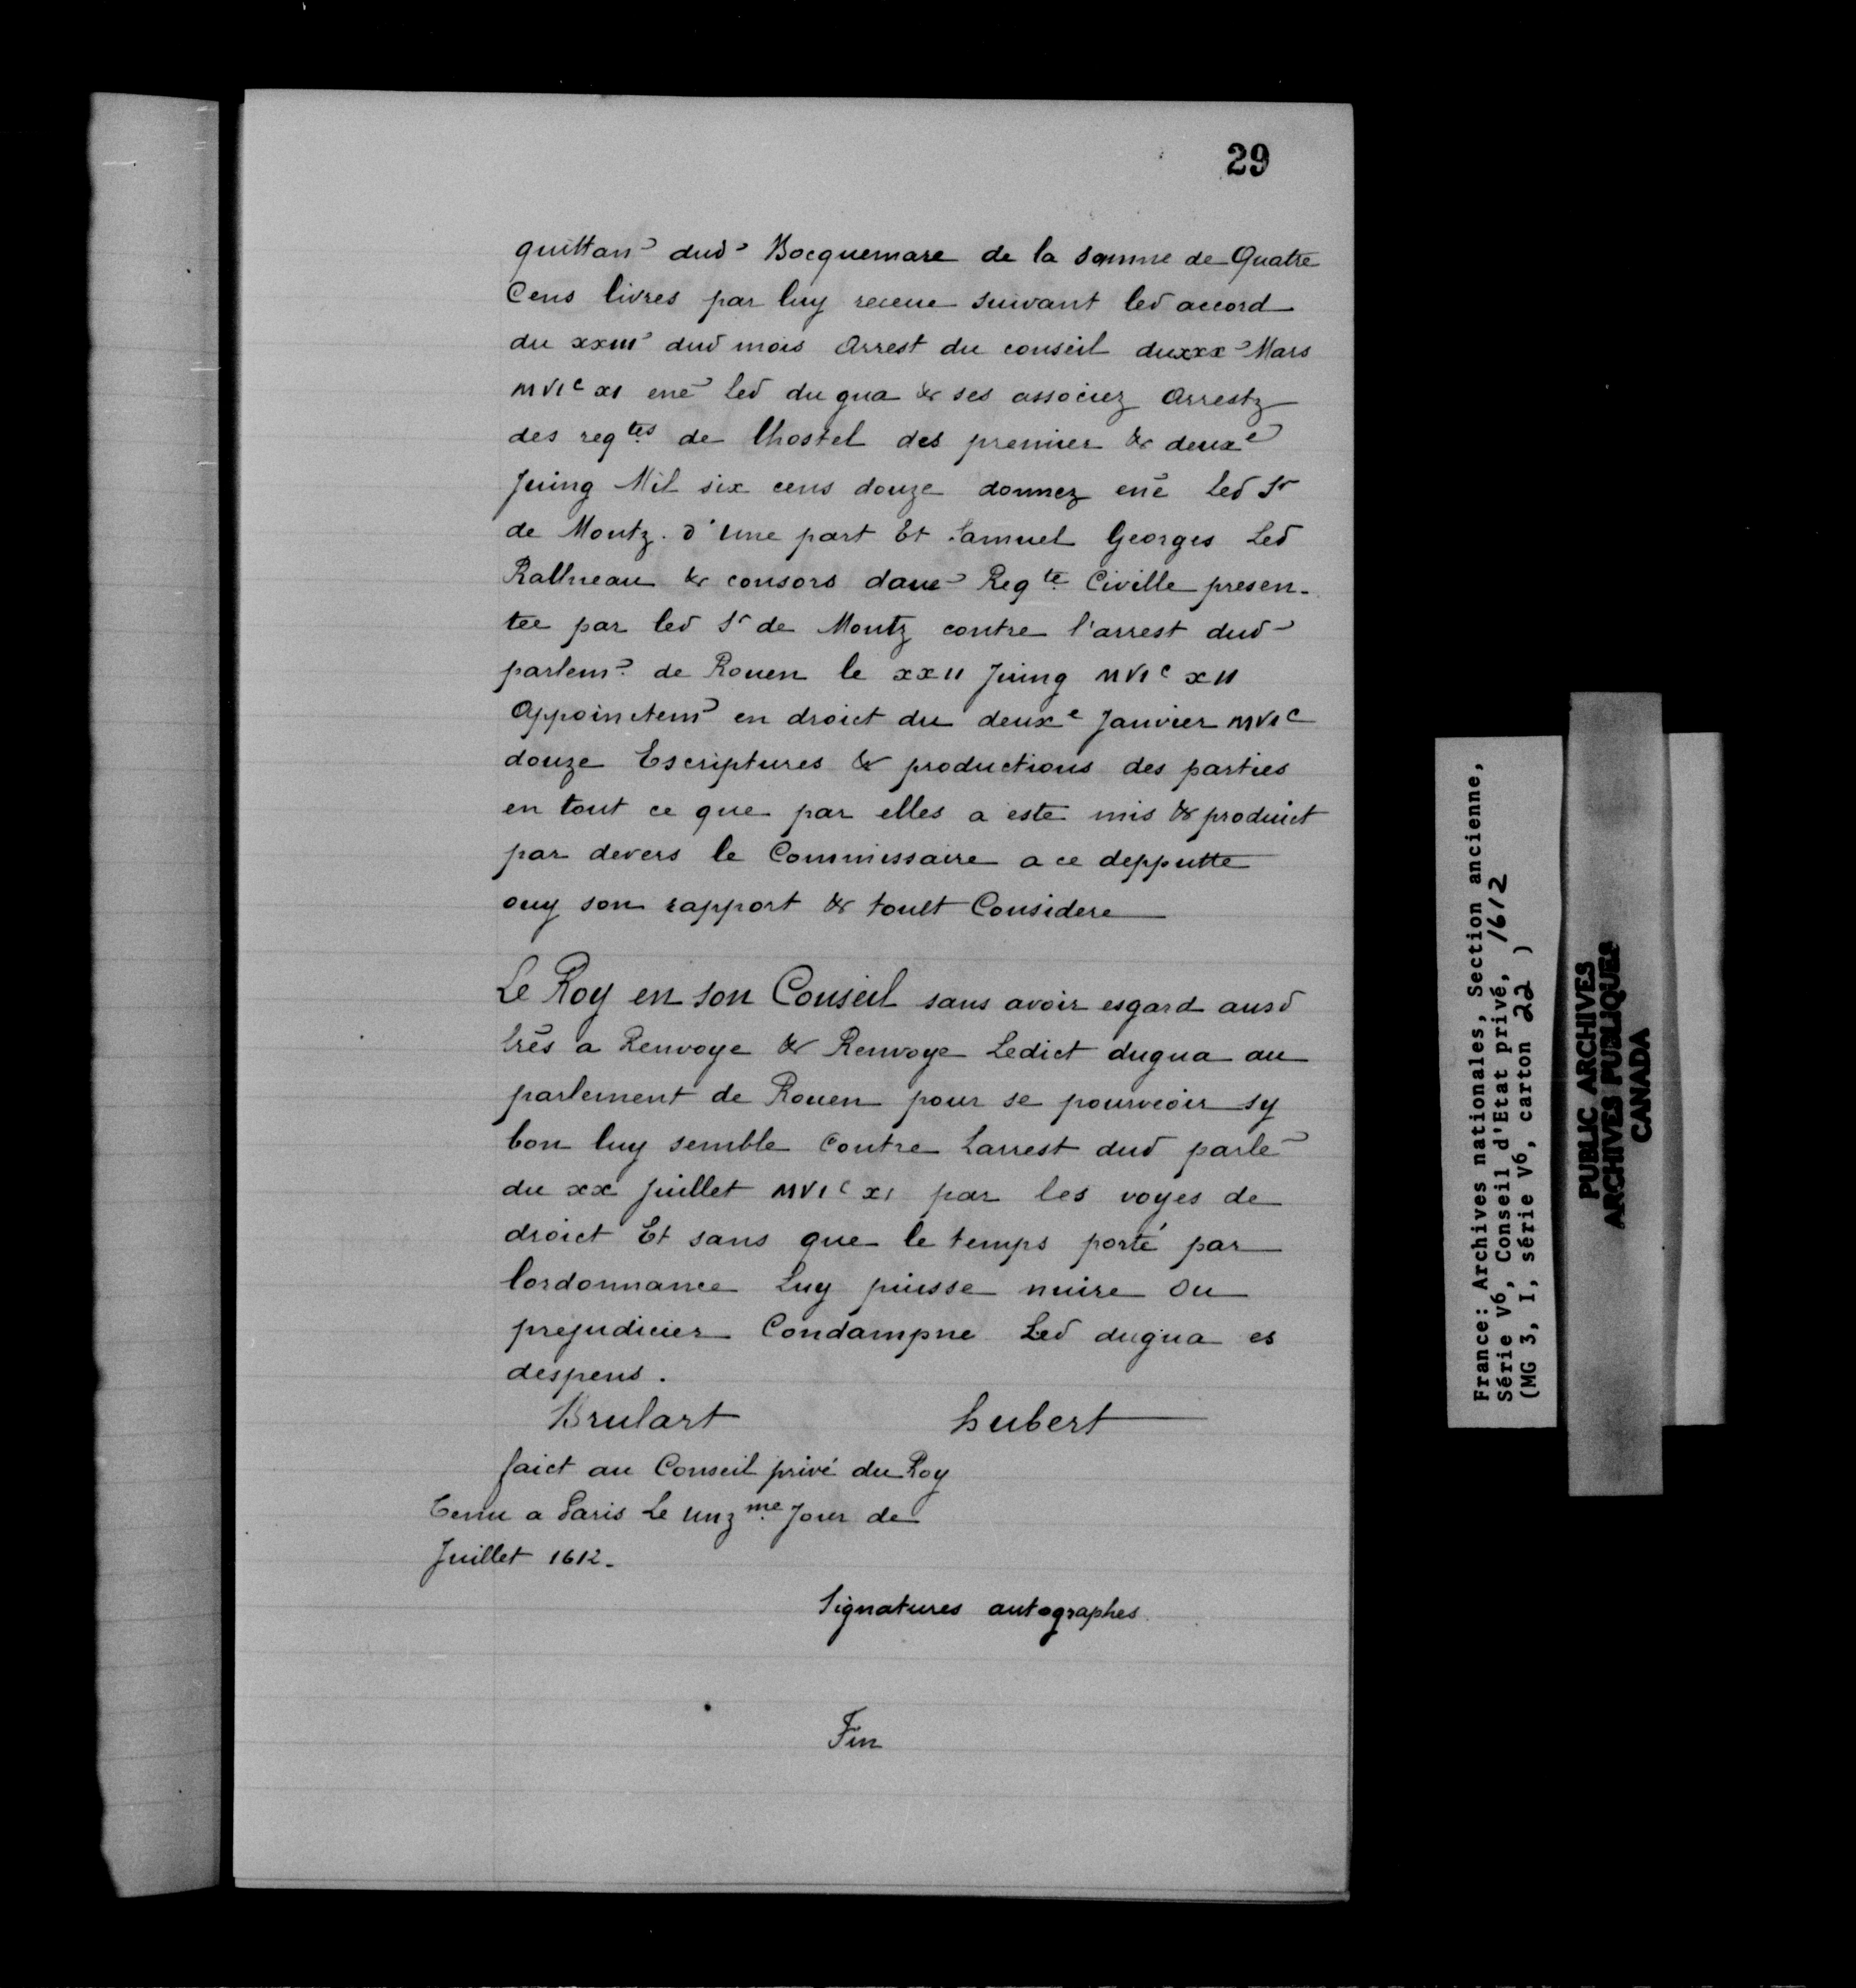 29
quittan~ dud~ Bocquemare de la somme de Quatre
Cens livres par luy receue suivant led accord
du xxiii~ dud mois Arrest du conseil du xxx~ Mars
MVIc XI enē led du gua & ses associez Arrestz
des reqtes de lhostel des premier & deuxe
Juing Mil six cens douze donnez enē Led Sr
de Montz. d'une part Et Samuel Georges Led
Rallneau & consors daue~ Reqte Civille presen-
tee par led Sr de Montz contre l'arrest dud~
parlem~ de Rouen le XXII Juing MVIc XII
Appoinctem~ en droict du deuxe Janvier MVIc
douze Escriptures & productions des parties
en tout ce que par elles a este mis & produict
par devers le Commissaire a ce depputte
ouy son rapport & toult Considere
Le Roy en son Conseil sans avoir esgard ausd
lrēs a Renvoye & Renvoye Ledict dugua au
parlement de Rouen pour se pourveoir sy
bon luy semble Contre Larrest dud parlē
du xx Juillet MVIc XI par les voyes de
droict Et sans que le temps porté par
lordonnance Luy puisse nuire Ou
prejudicier Condampne Led dugua es
despens.
Brulart hubert
faict au Conseil privé du Roy
Tenu a Paris Le unzme Jour de
Juillet 1612.
Signatures autographes
Fin
France: Archives nationales, Section ancienne,
Série V6, Conseil d'Etat privé, 1612
(MG 3, I, série V6, carton 22 )
PUBLIC ARCHIVES
ARCHIVES PUBLIQUES
CANADA